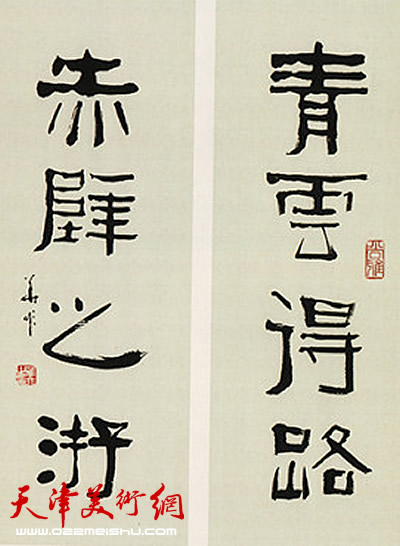 青雲得路
赤壁之游
天津美術網
www.022meishu.com